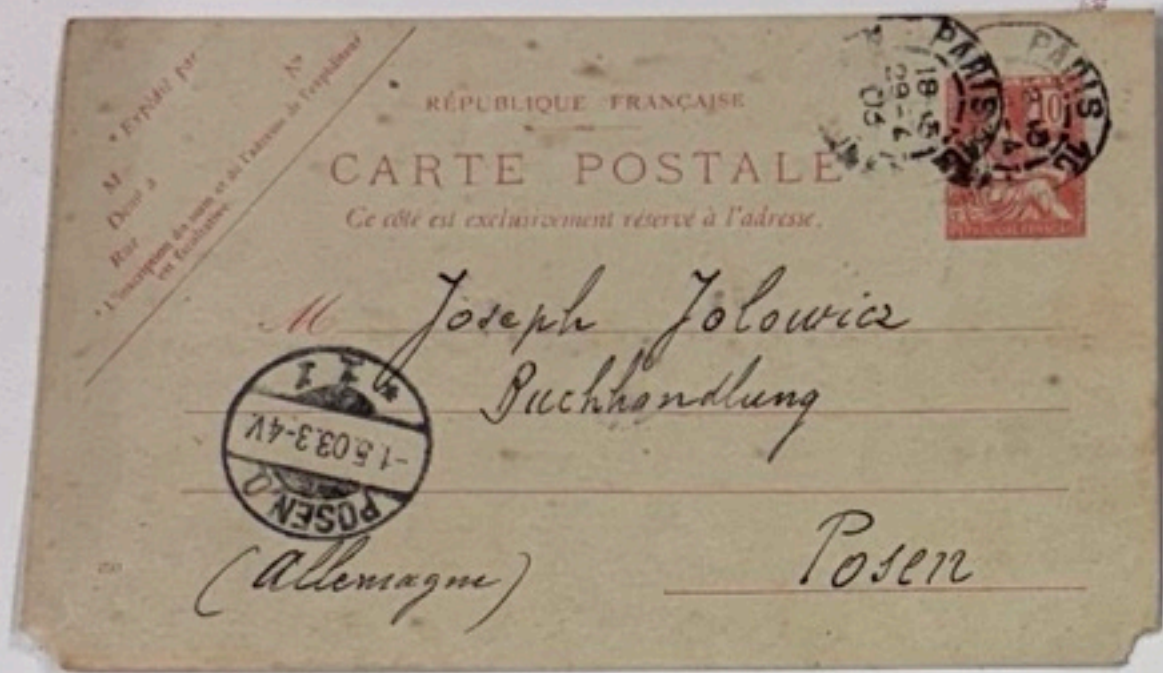 * Expédié par
N°
M
Demt à
Rue
* L'inscription du nom et de l'adresse de l'expéditeur
est facultative.
RÉPUBLIQUE FRANÇAISE
CARTE POSTALE
Ce côté est exclusivement réservé à l'adresse.
PARIS
18
29-4
03
PARIS
10
RÉPUBLIQUE FRANÇAISE
M Joseph Jolowicz
Buchhandlung
POSEN.O.
-1.5.03.3-4V.
* 1 1
(Allemagne)
Posen